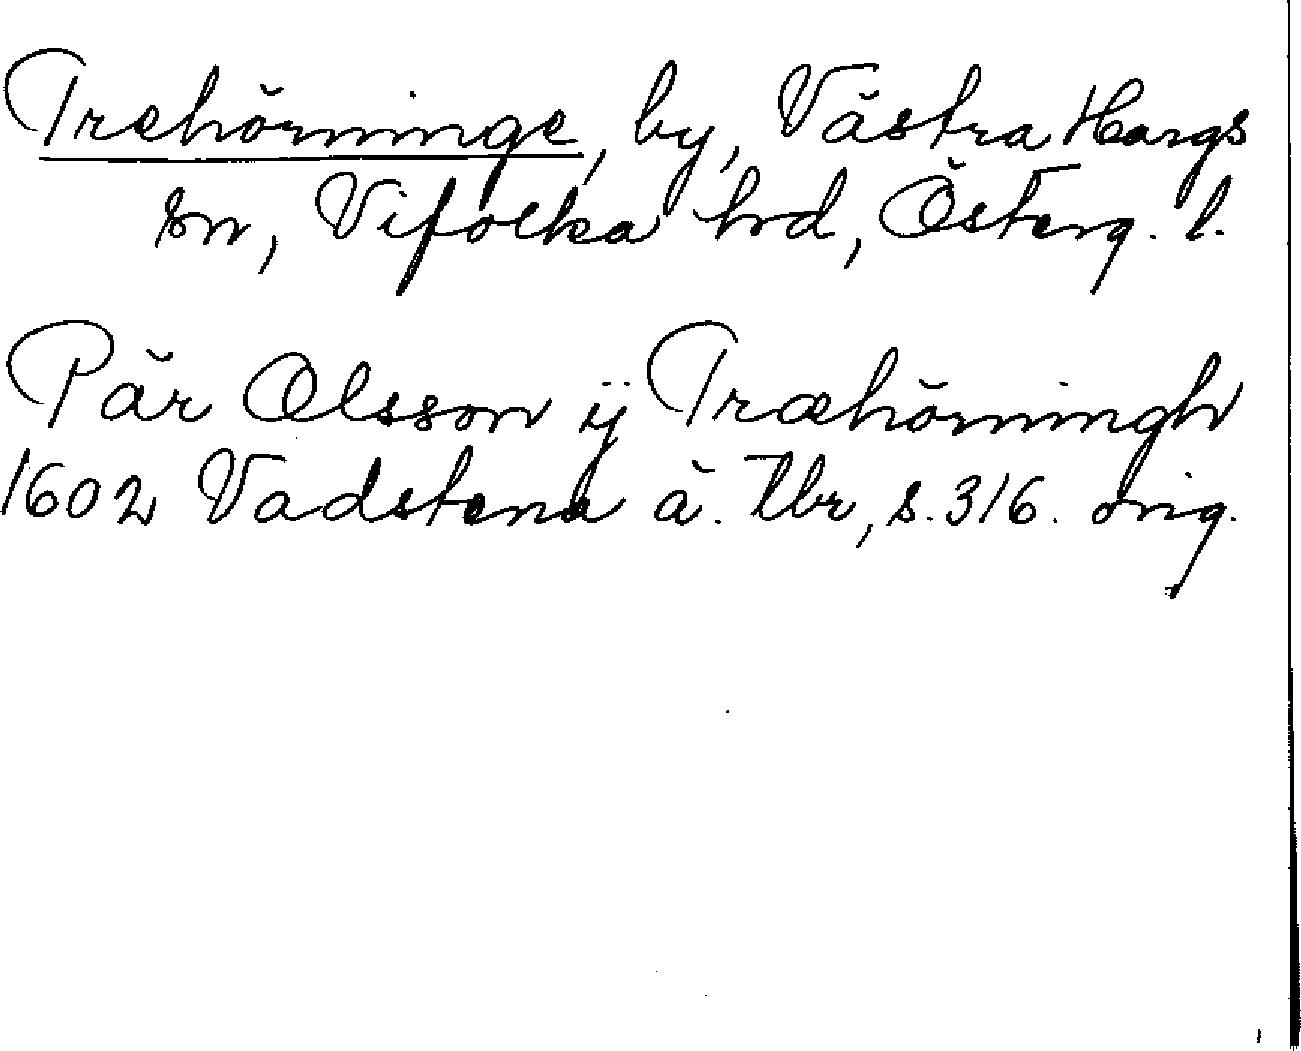 Trehörninge, by, Västra Hargs
sn, Vifolka hrd, Österg. l.
Pär Olsson ÿ Træhörningh
1602 Vadstena ä. tbr, s. 316. orig.